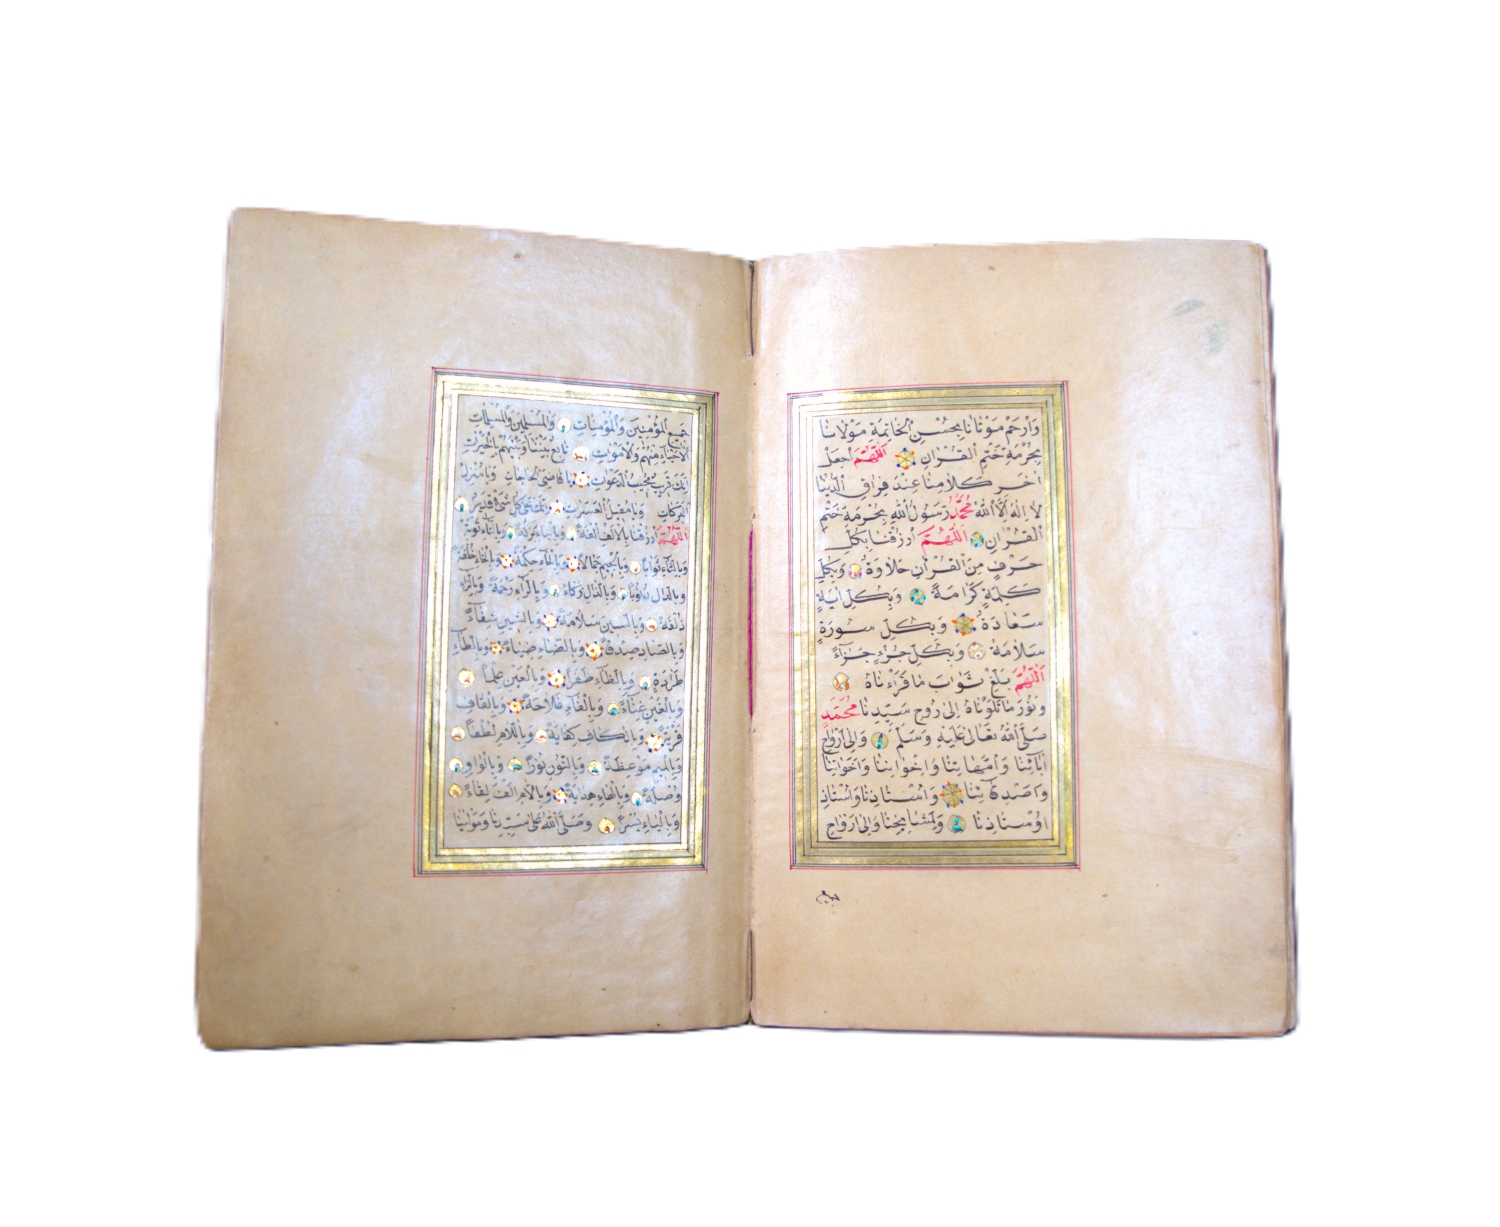 وَارْحَمْ مَوْتَانَا بِحُسْنِ الْخَاتِمَةِ مَوْلَانَا
بِحُرْمَةِ خَتْمِ الْقُرْاٰنِ اَللّٰهُمَّ اجْعَلْ
اٰخِرَ كَلَامِنَا عِنْدَ فِرَاقِ الدُّنْيَا
لَا اِلٰهَ اِلَّا اللّٰهُ مُحَمَّدٌ رَسُولُ اللّٰهِ بِحُرْمَةِ خَتْمِ
الْقُرْاٰنِ اَللّٰهُمَّ ارْزُقْنَا بِكُلِّ
حَرْفٍ مِنَ الْقُرْاٰنِ حَلَاوَةً وَبِكُلِّ
كَلِمَةٍ كَرَامَةً وَبِكُلِّ اٰيَةٍ
سَعَادَةً وَبِكُلِّ سُورَةٍ
سَلَامَةً وَبِكُلِّ جُزْءٍ جَزَاءً
اَللّٰهُمَّ بَلِّغْ ثَوَابَ مَا قَرَأْنَاهُ
وَنُورَ مَا تَلَوْنَاهُ اِلٰى رُوحِ سَيِّدِنَا مُحَمَّدٍ
صَلَّى اللّٰهُ تَعَالٰى عَلَيْهِ وَسَلَّمَ وَاِلٰى اَرْوَاحِ
اٰبَائِنَا وَاُمَّهَاتِنَا وَاِخْوَانِنَا وَاَخَوَاتِنَا
وَاَصْدِقَائِنَا وَاُسْتَاذِنَا وَاُسْتَاذِ
اُوسْتَاذِنَا وَلِمَشَايِخِنَا وَاِلٰى اَرْوَاحِ
جميع
جَمِيعِ الْمُؤْمِنِينَ وَالْمُؤْمِنَاتِ وَالْمُسْلِمِينَ وَالْمُسْلِمَاتِ
اَلْاَحْيَاءِ مِنْهُمْ وَالْاَمْوَاتِ تَابِعْ بَيْنَنَا وَبَيْنَهُمْ بِالْخَيْرَاتِ
اِنَّكَ قَرِيبٌ مُجِيبُ الدَّعَوَاتِ يَا قَاضِيَ الْحَاجَاتِ وَيَا مُنْزِلَ
الْبَرَكَاتِ وَيَا مُقِيلَ الْعَثَرَاتِ وَاِنَّكَ عَلٰى كُلِّ شَيْءٍ قَدِيرٌ
اَللّٰهُمَّ ارْزُقْنَا بِالْاَلِفِ اُلْفَةً وَبِالْبَاءِ بَرَكَةً وَبِالتَّاءِ تَوْبَةً
وَبِالثَّاءِ ثَوَابًا وَبِالْجِيمِ جَمَالًا وَبِالْحَاءِ حِكْمَةً وَبِالْخَاءِ
وَبِالدَّالِ وَبِالذَّالِ ذَكَاءً وَبِالرَّاءِ رَحْمَةً وَبِالزَّاءِ
زُلْفَةً وَبِالسِّينِ سَلَامَةً وَبِالشِّينِ شِفَاءً
وَبِالصَّادِ صِدْقًا وَبِالضَّادِ ضِيَاءً وَبِالطَّاءِ
وَبِالظَّاءِ ظَفَرًا وَبِالْعَيْنِ عِلْمًا
وَبِالْغَيْنِ غِنَاءً وَبِالْفَاءِ فَلَاحَةً وَبِالْقَافِ
وَبِالْكَافِ كِفَايَةً وَبِاللَّامِ لُطْفًا
وَبِالْمِيمِ مَوْعِظَةً وَبِالنُّونِ نُورًا وَبِالْوَاوِ
وُصْلَةً وَبِالْهَاءِ هِدَايَةً وَبِلَامِ اَلِفْ لِقَاءً
وَبِالْيَاءِ يُسْرًا وَصَلَّى اللّٰهُ عَلٰى سَيِّدِنَا وَمَوْلٰينَا